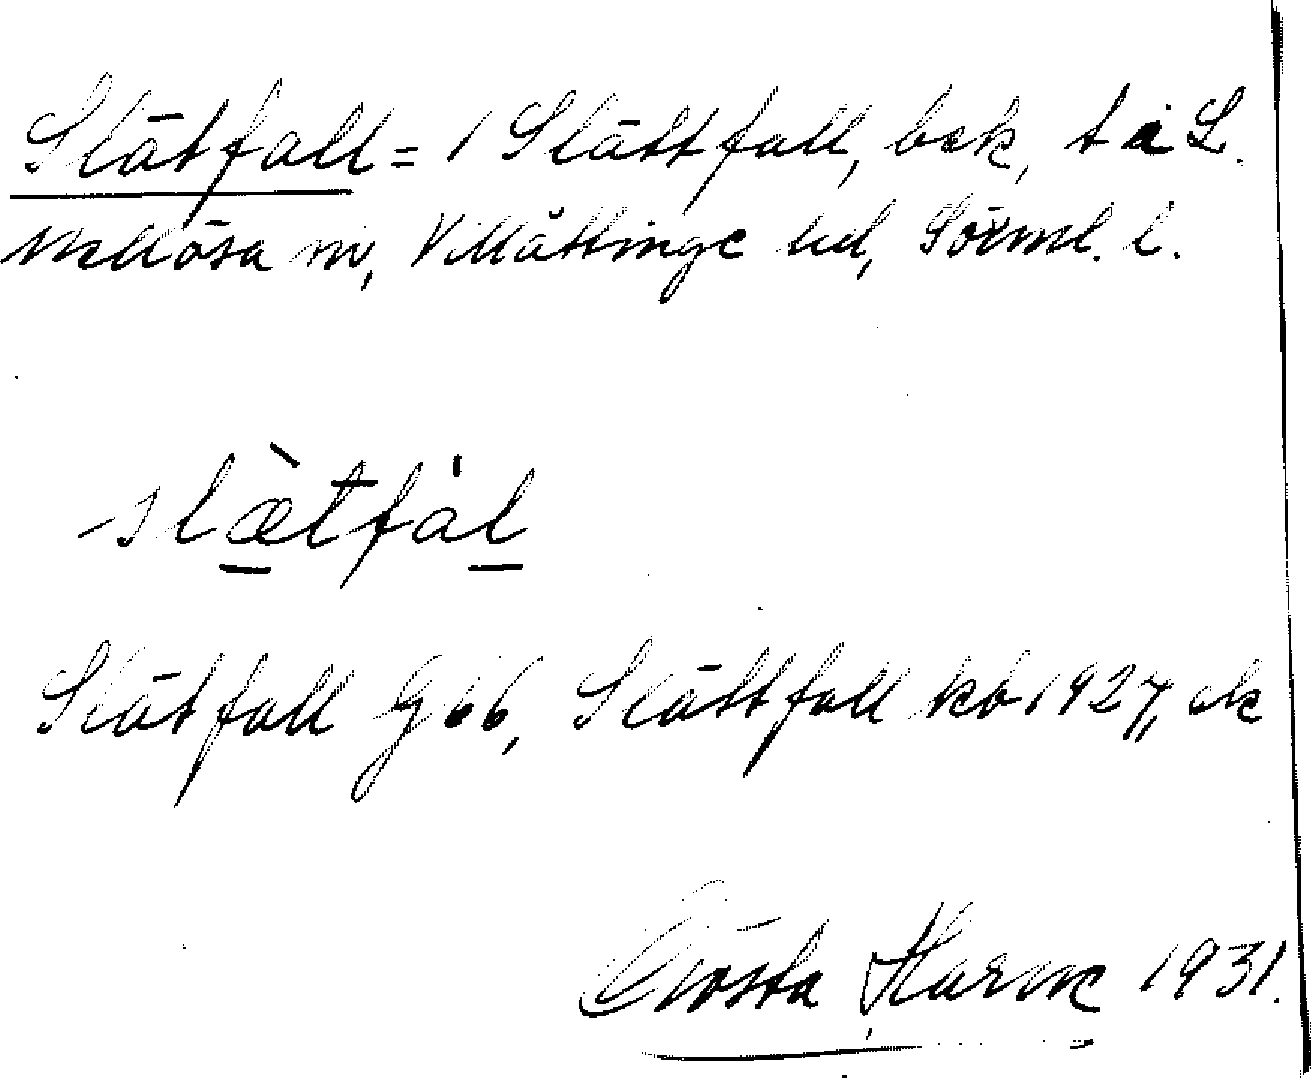 Slätfall = 1 Slättfall, bek, t a L.
Mellösa sn, Villåttinge hd, Sörml. l.
slæ̀tfàl
Slätfall G 66, Slättfall kb 1927, ek
Gösta Harne 1931.